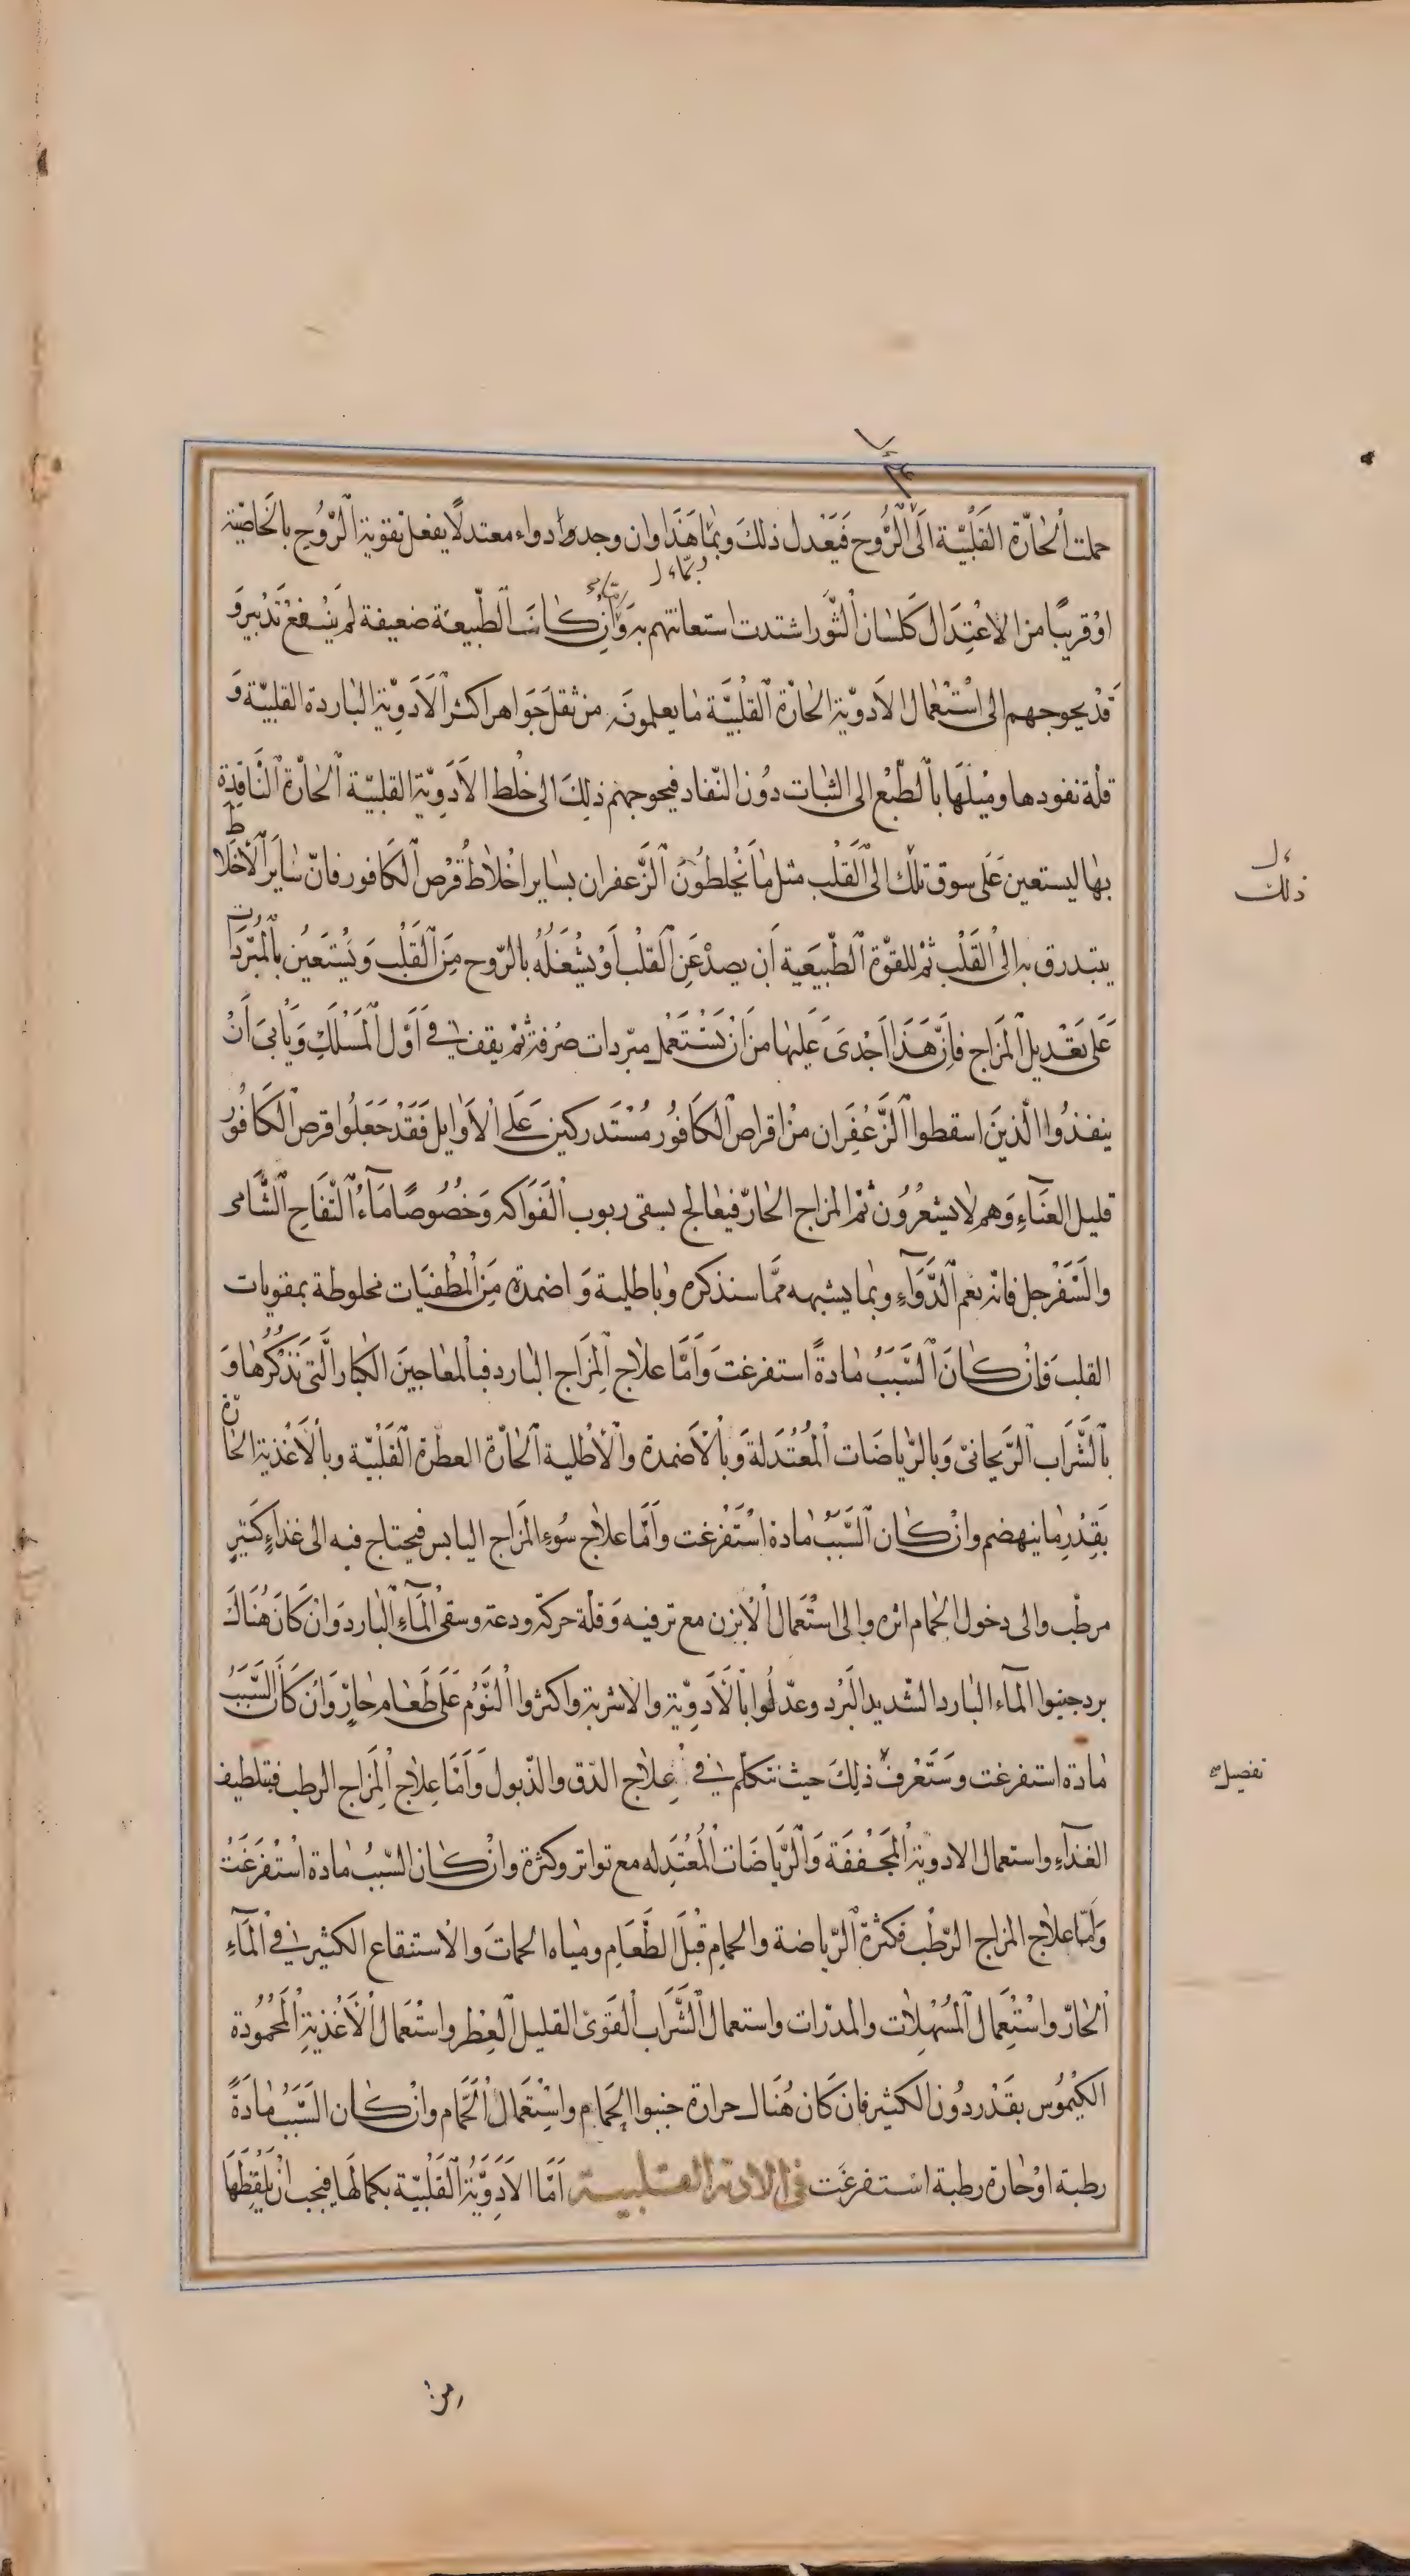 حملت الْحٰارّة القَلْبيّة الَى الْرُّوح فَيَعْدل ذلكَ وبمٰا هَذَا وان وجدوا دواء معتدلًا يفعل تقوية الرّوُحِ بالخَاصيّة
اوْ قريبًا من الاعْتِدَال كَلسٰان الثّور اشتدت استعانتهم به وَانْ كانت الطّبيعَة ضعيفة لم ينْفع تَدْبير وَ
قَدْ يحوجهم الى اسْتعْمال الاَدويّة الحٰارّة القلْبيَّة مٰا يعلمونَه من ثقل جَوَاهر اكثر الاَدَوِيّة البٰاردة القلبيّة وَ
قلّة نفودها وميْلهَا بالطّبْع الى الثبٰات دُون النّفاد فيحوجهم ذلِكَ الى خَلْط الاَدَوِيّة القلبيّة الحٰارّة النّافِذة
بهٰا ليستعين عَلَى سوق تلْك الى القَلْب مثل مٰا يَخْلطُونَ الزَّعفران بسٰاير اخْلاٰط قُرْص الكَافور فانّ سٰاير الأخلاط
يتبدرق به الى القَلْب ثمْ للقوّة الطّبيَعية اَن يصدْ عَن القلْب اَوْ يشْغَلهُ بالرّوح مِنَ القَلْب وَيَسْتَعين بالْمُبّردَات
عَلى تَعْديل المَزاج فاِنَّ هَذَا اَجْدىَ عَلَيْهٰا من اَنْ يَسْتَعْمل مبّردات صْرفة ثمْ يقف فىِ اَوّل المَسْلَكِ وَيأبى اَنْ
ينفذُوا الّذينَ اسقطوا الزَّعْفِرَان منْ اقراص الكاَفوُر مُسْتَدركين عَلَى الاَوٰايل فَقَدْ جَعَلُوا قرص الكَافوُر
قليل الغنَآءِ وَهم لا يشعُرُون ثمّ المزاج الحٰارّ فيعٰالج بسقى ربوب الْفَوَاكه وَخُصُوصًا مَآءُ التّفَاحِ الشَّامى
والسَّفَرْجل فانّه نعم الدَّوَآءِ وبمٰا يشبهه ممَّا سنذكره وبٰاطلية وَاضمدة مِن المُطْفيَات مخلوطة بمقوياتِ
القلبَ فَاِنْ كٰانَ السَّبَبُ مٰادةً استفرغتَ وَاَمَّا علاٰج المَزَاج البٰارد فبالمعٰاجينَ الكبٰار الَّتى نَذْكُرُهٰا وَ
بالشَّرَاب الرَّيحَانىّ وَبالرّيٰاضَات المُعْتَدلة وَبالاَضمدة والاَطْلية الحٰارّة العطرة القَلْبيّة وبالاَغْذية الحٰارّة
بَقدْرِ مٰا ينهضم وانْ كٰان السَّبَبُ مٰادة اسْتَفْرغت وَاَمّا علاٰج سُوءِ المَزَاج اليٰابس فيحتاج فيه الى غذآءٍ كَثيرٍ
مرطّب والى دخول الحمام اثره والى اسْتعْمَال الاْبزن مع ترفيه وَقلّة حركةٍ ودعة وسقى المَآءِ البٰارد وَانْ كَانَ هُنَاكَ
برد جنبوا المآء البٰارد الشّديد البَرْد وعدّلوُا بالاَدَوِيّة والاشربة واكثروا النَّوْم عَلَى طَعٰام حٰارّ وَاِن كَانَ السَّبَبُ
مٰادة استفرغت وسَتَعْرفُ ذلِكَ حيث نتكلّم فىِ عِلاٰج الدّق والذّبول وَاَمَّا عِلاٰج المِزَاج الرطب فبتلطيف
الغذَآءِ واستعمال الادويّة المُجَفْفَة وَالرّيَاضَات المُعْتَدِله مع تواتر وكثرة وانْ كٰان السّببُ مٰادة استَفْرَغَتْ
وَامّا علاٰج المزاج الرّطْب فَكثرة الرّياضة والحمام قَبْلَ الطَّعَامِ ومياه الحمات والاستنقاع الكثير فىِ المَآءِ
الحٰارّ واسْتعْمٰال المُسْهلاٰت والمدرّات واستعمال الشَّرَاب القَوىّ القليل العِطْر واسْتعْمَال الاَغْذِيَة المَحْمُودَة
الكَيْمُوس بقَدْر دُون الكثير فان كَان هُنَاك حرارة جنبوا الحمام واسْتعْمَال الحَمّام وانْ كٰان السَّبَبُ مٰادَةً
رطبة اوْ حٰارة رطبة استفرغَت فى الادوية القلبية اَمّا الاَدَوِيَّة القَلْبيّة بكمالهَا فيجب اَنْ يَلْقطهَا
ذلك
تفصيل